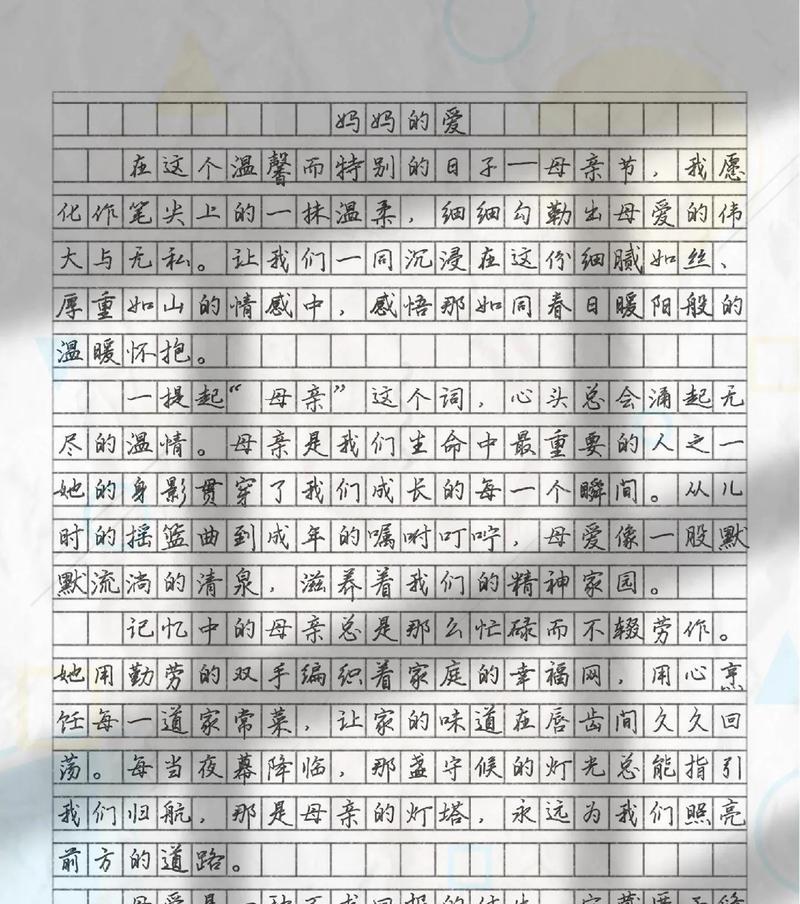 妈妈的爱
在这个温馨而特别的日子一母亲节，我愿
化作笔尖上的一抹温柔，细细勾勒出母爱的伟
大与无私。让我们一同沉浸在这份细腻如丝、
厚重如山的情感中，感悟那如同春日暖阳般的
温暖怀抱。
一提起“母亲”这个词，心头总会涌起无
尽的温情。母亲是我们生命中最重要的人之一
她的身影贯穿了我们成长的每一个瞬间。从儿
时的摇篮曲到成年的嘱咐叮咛，母爱像一股默
默流淌的清泉，滋养着我们的精神家园。
记忆中的母亲总是那么忙碌而不辍劳作。
她用勤劳的双手编织着家庭的幸福网，用心烹
饪每一道家常菜，让家的味道在唇齿间久久回
荡。每当夜幕降临，那盏守候的灯光总能指引
我们归航，那是母亲的灯塔，永远为我们照亮
前方的道路。
母爱是一种不求回报的付出，它蕴